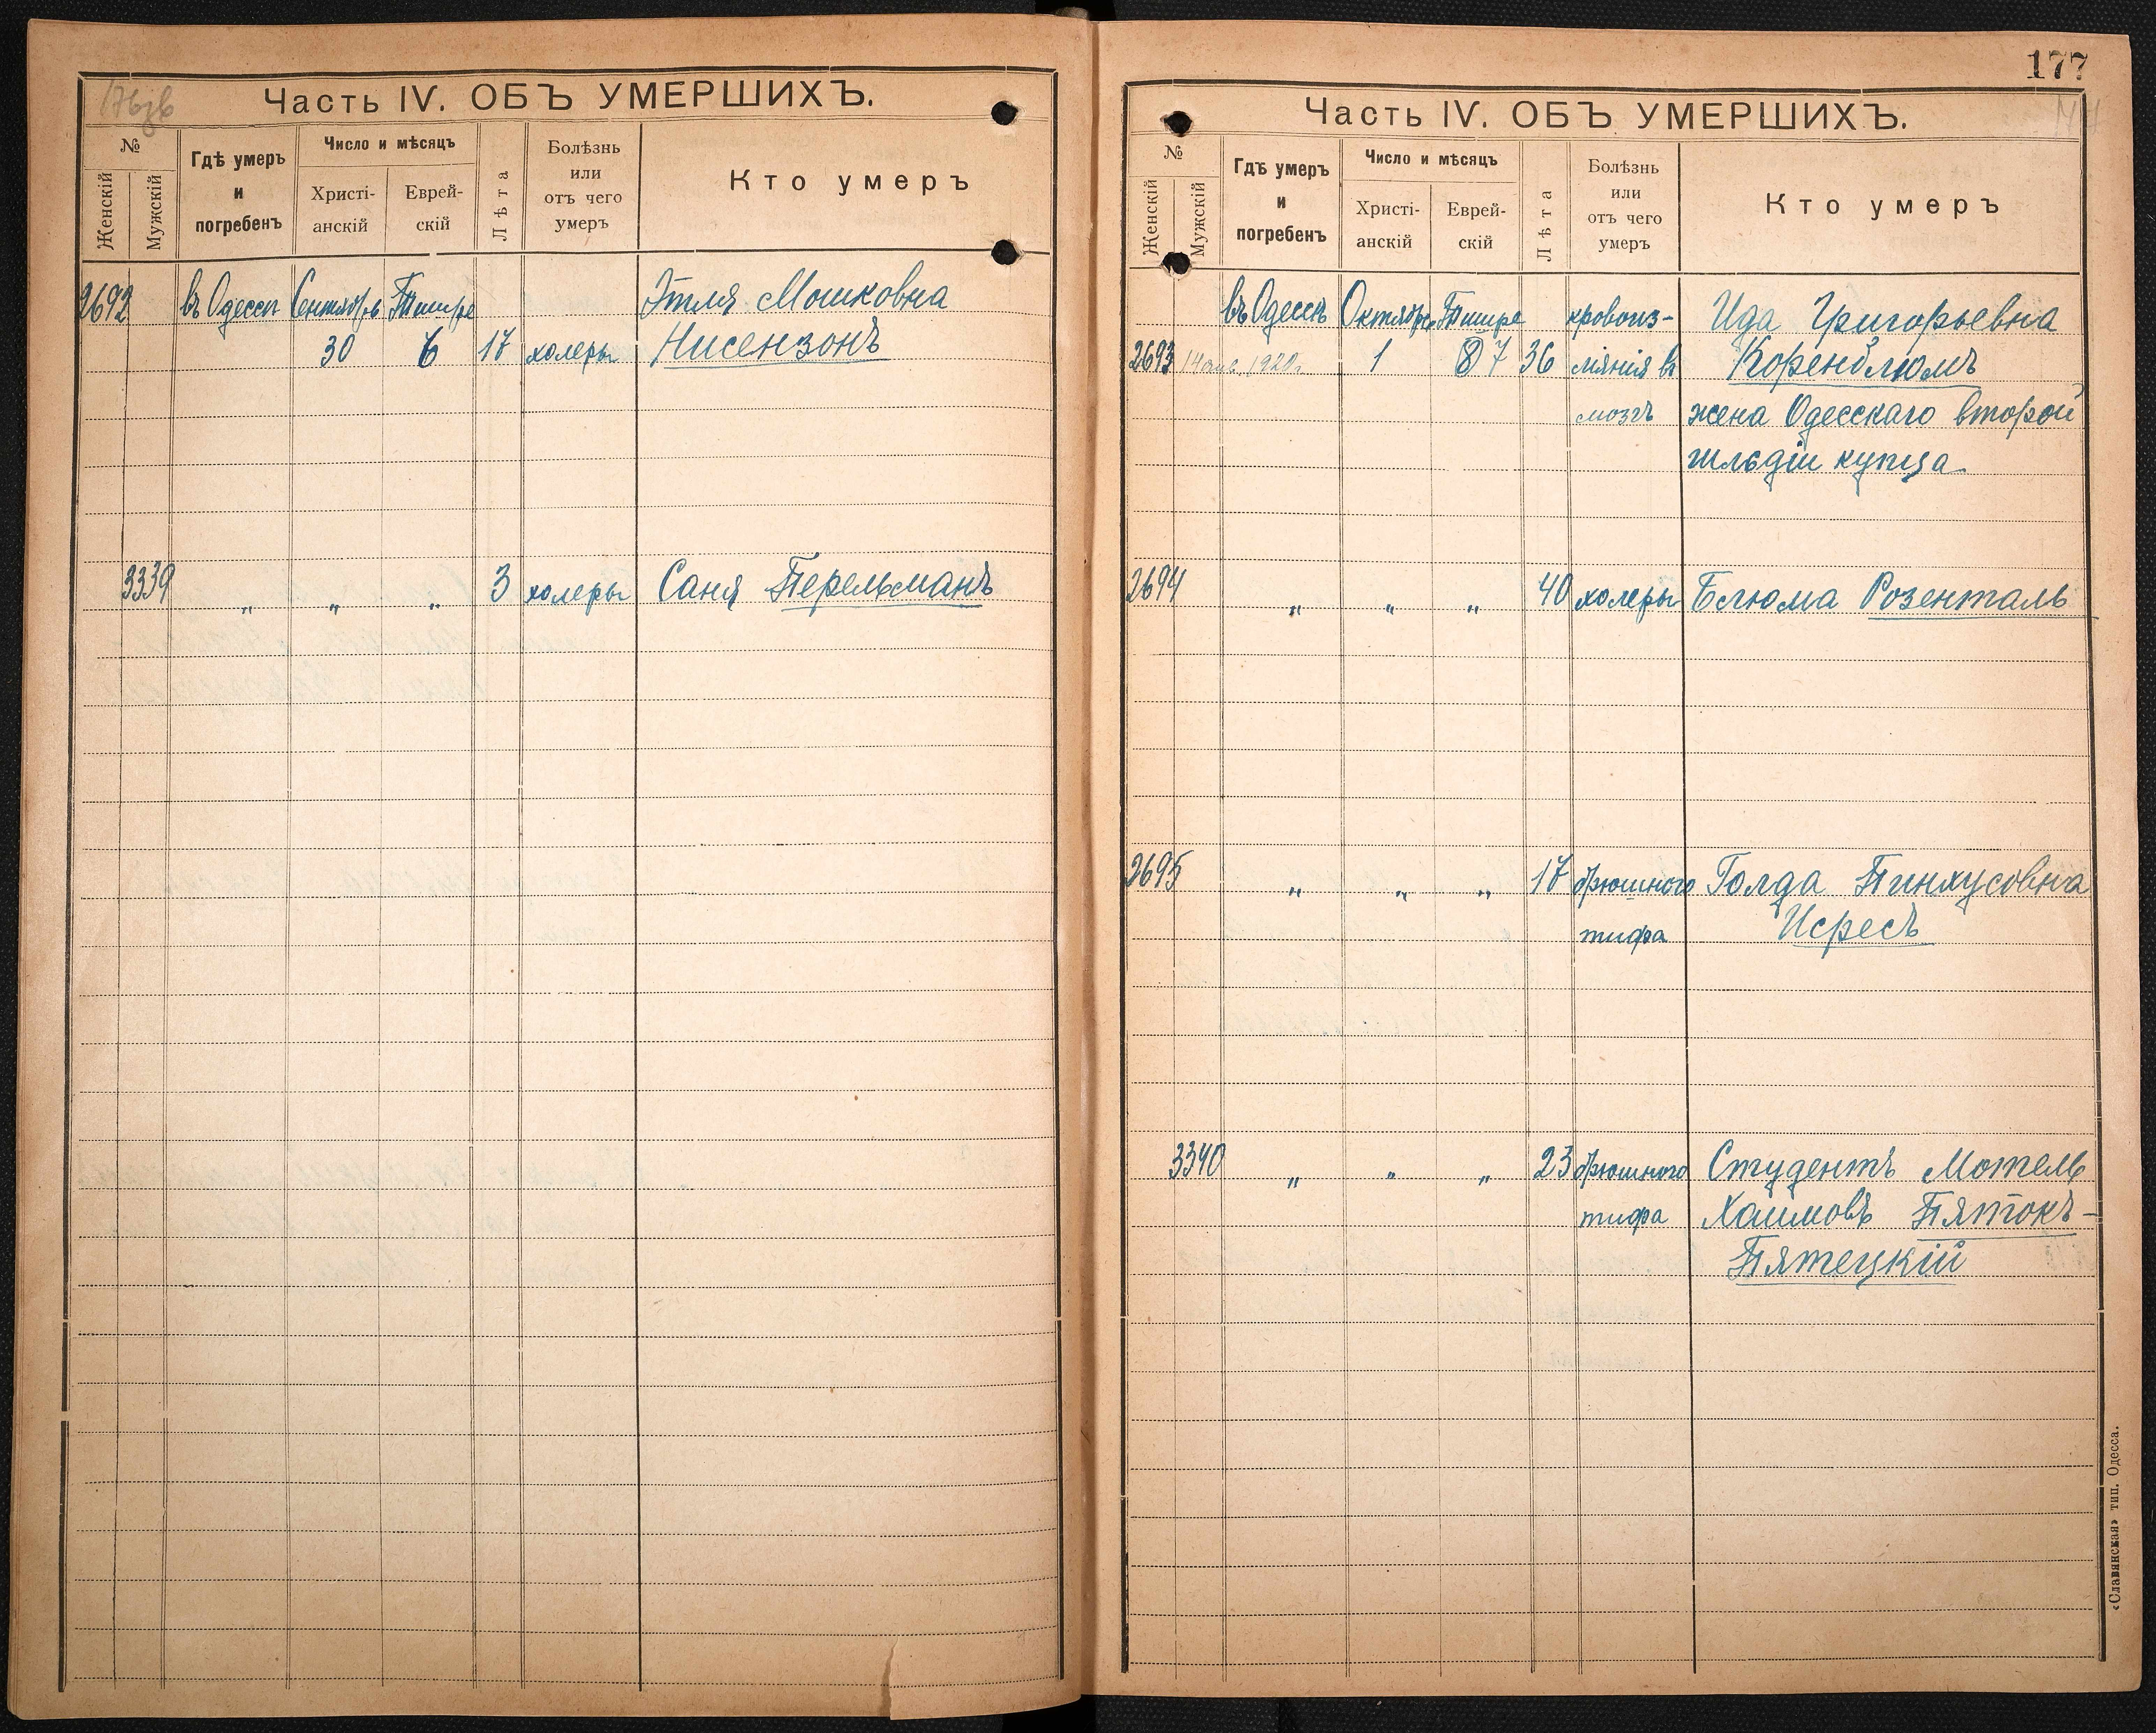 176 об
Часть IV. ОБЪ УМЕРШИХЪ.
№
Женскій
Мужскій
Гдѣ умеръ
и
погребенъ
Число и мѣсяцъ
Христі-
анскій
Еврей-
скій
Лѣта
Болѣзнь
или
отъ чего
умеръ
Кто умеръ
2692 въ Одессѣ Сентября Тишре Этля Мошковна
30 6 17 холеры Нисензонъ
3339 " " " 3 холеры Саня Перельманъ
177
Часть IV. ОБЪ УМЕРШИХЪ.
№
Женскій
Мужскій
Гдѣ умеръ
и
погребенъ
Число и мѣсяцъ
Христі-
анскій
Еврей-
скій
Лѣта
Болѣзнь
или
отъ чего
умеръ
Кто умеръ
въ Одессѣ Октября Тишре кровоиз- Ида Григорьевна
2693 1920 г. 1 7 36 ліянія въ Коренблюмъ
мозгъ жена Одесскаго второй
гильдіи купца
2694 " " " 40 холеры Блюма Розенталь
2695 " " " 17 брюшного Голда Пинхусовна
тифа Исресъ
3340 " " " 23 брюшного Студентъ Мотель
тифа Хаимовъ Пятокъ-
Пятецкій
«Славянская» тип. Одесса.